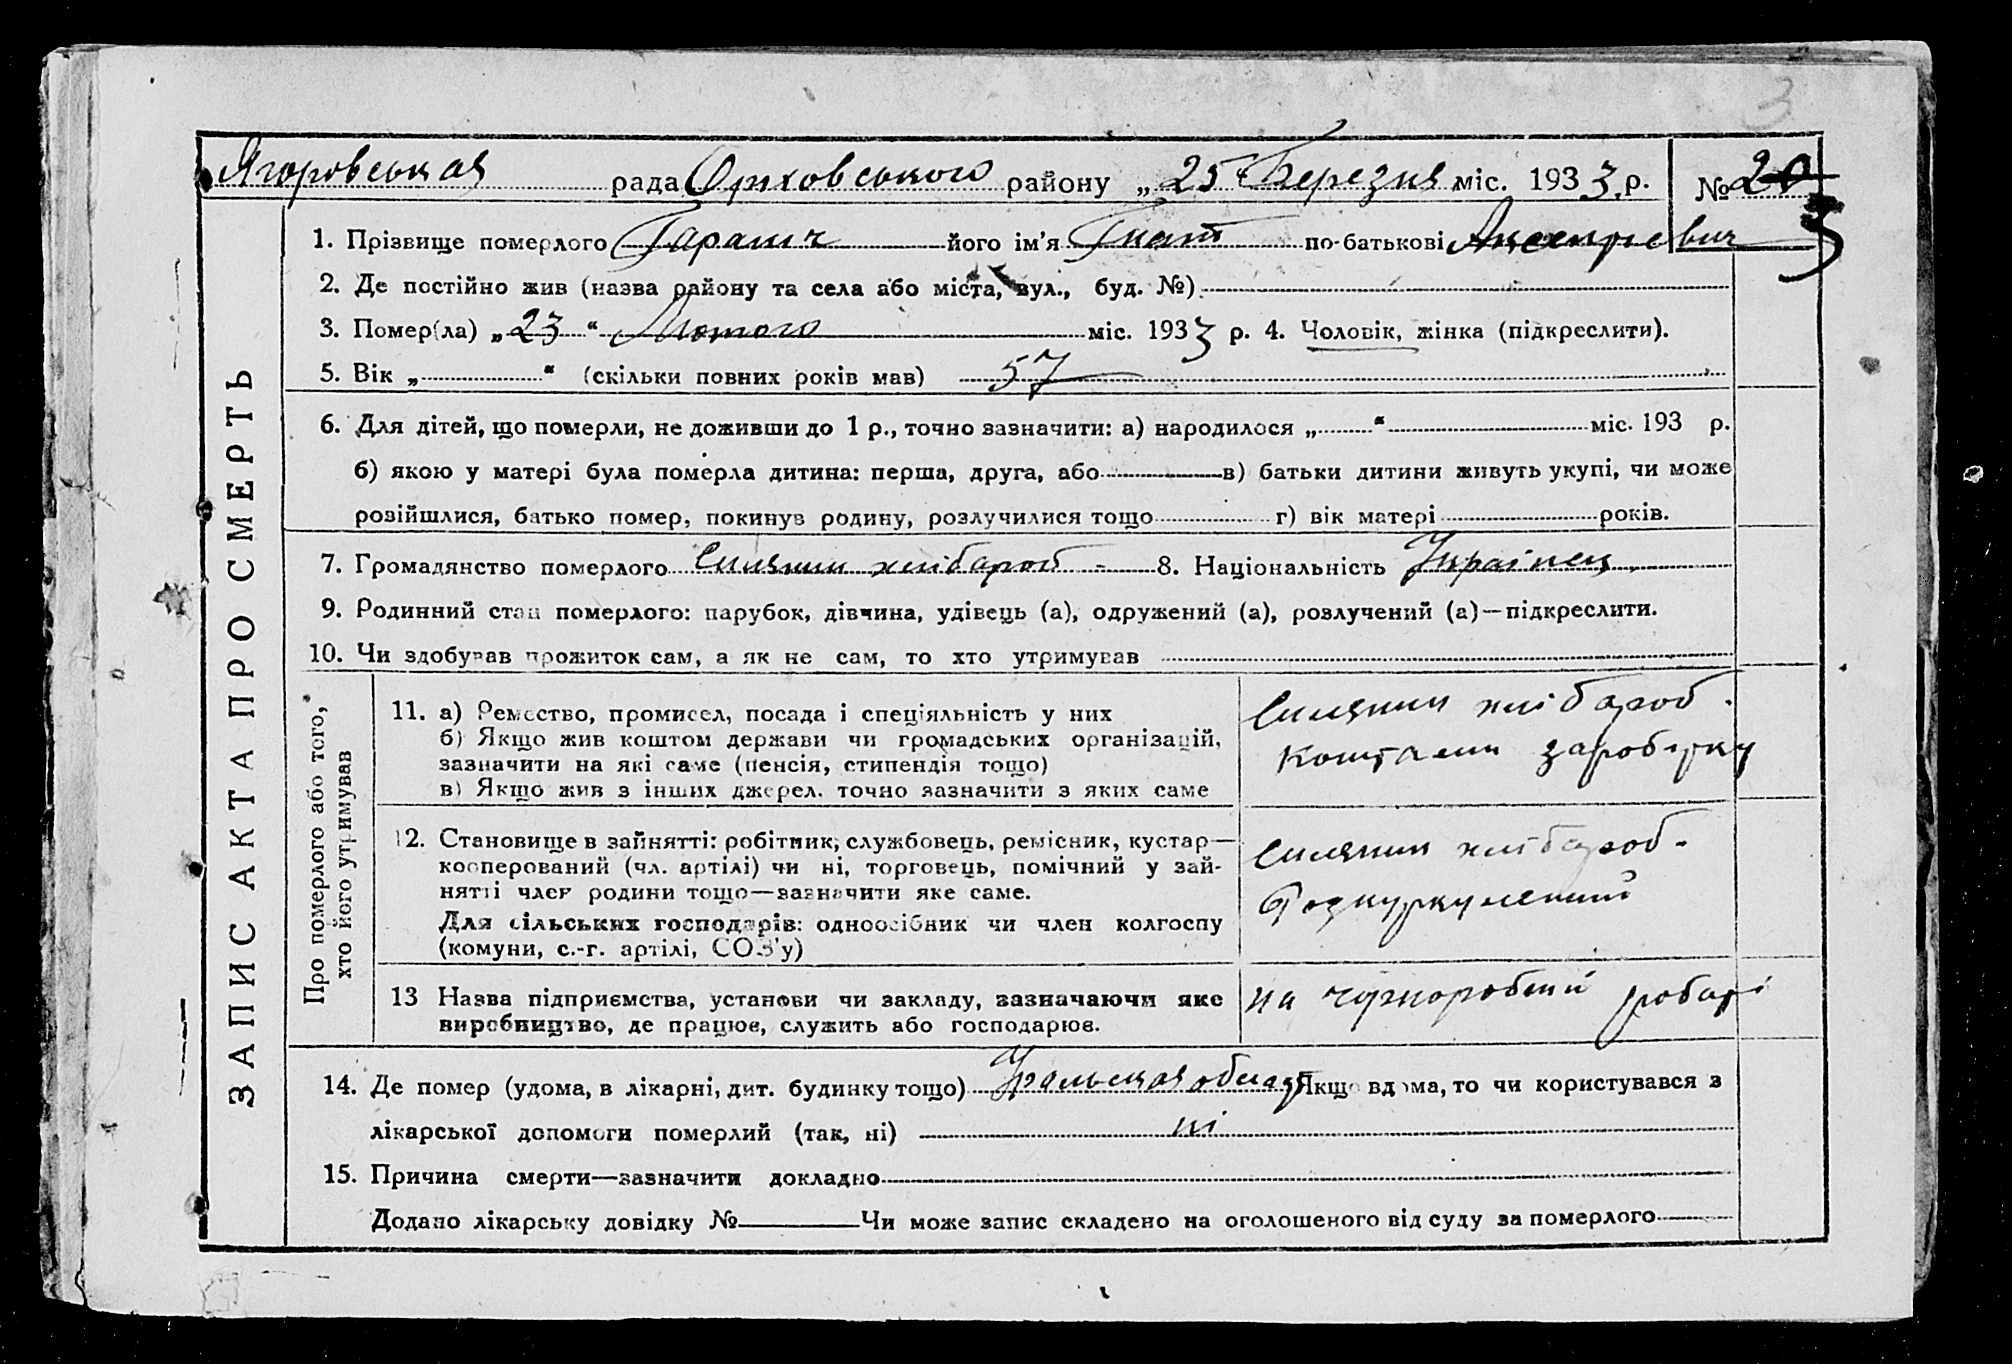 3
Ягоровськая рада Оріховського району „ 25 " Березня міс. 1933 р. № 20
3
1. Прізвище померлого Гараніч його ім'я Гнат по-батькові
2. Де постійно жив (назва району та села або міста, вул., буд. №)
3. Помер(ла) „ 23 “ Лютого міс. 1933 р. 4. Чоловік, жінка (підкреслити).
5. Вік „ “ (скільки повних років мав) 57
6. Для дітей, що померли, не доживши до 1 р., точно зазначити: а) народилося „ “ міс. 193 р.
б) якою у матері була померла дитина: перша, друга, або в) батьки дитини живуть укупі, чи може
розійшлися, батько помер, покинув родину, розлучилися тощо г) вік матері років.
7. Громадянство померлого Силянин хлібароб - 8. Національність Українец
9. Родинний стан померлого: парубок, дівчина, удівець (а), одружений (а), розлучений (а)—підкреслити.
10. Чи здобував прожиток сам, а як не сам, то хто утримував
ЗАПИС АКТА ПРО СМЕРТЬ
Про померлого або того,
хто його утримував
11. а) Ремество, промисел, посада і спеціяльність у них
б) Якщо жив коштом держави чи громадських організацій,
зазначити на які саме (пенсія, стипендія тощо)
в) Якщо жив з інших джерел, точно зазначити з яких саме
Силянин хлібароб.
Коштами заробітку
12. Становище в зайнятті: робітник, службовець, ремісник, кустар—
кооперований (чл. артілі) чи ні, торговець, помічний у зай-
нятті член родини тощо—зазначити яке саме.
Для сільських господарів: одноосібник чи член колгоспу
(комуни, с.-г. артілі, СОЗ'у)
Силянин хлібароб-
Розкуркулений
13 Назва підприємства, установи чи закладу, зазначаючи яке
виробництво, де працює, служить або господарює.
на чорноробчій роботі
14. Де помер (удома, в лікарні, дит. будинку тощо) Уральская област Якщо вдома, то чи користувався з
лікарської допомоги померлий (так, ні) ні
15. Причина смерти—зазначити докладно
Додано лікарську довідку № Чи може запис складено на оголошеного від суду за померлого